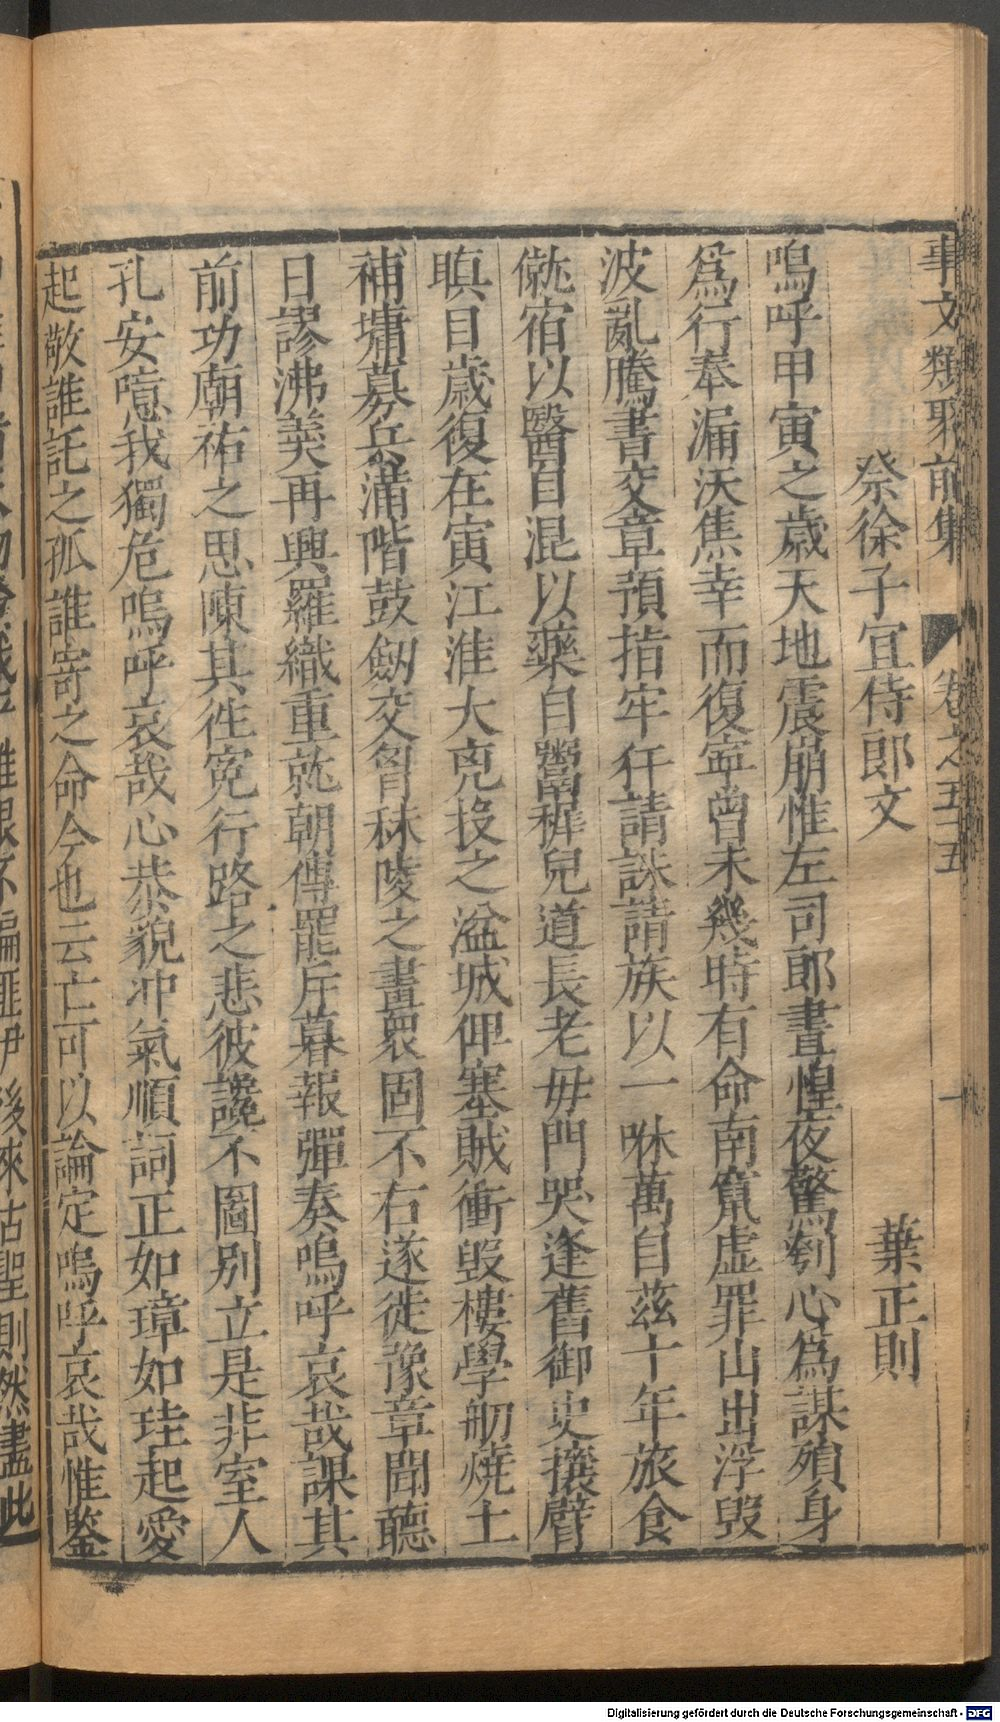 事文類聚前集 卷之五十五 一
祭徐子宜侍郎文 葉正則
嗚呼甲寅之歳天地震崩惟左司郎晝惶夜驚刳心為謀殞身
爲行奉漏沃焦幸而復寧曽未幾時有命南竄虚罪山出浮毀
波亂騰書交章預指牢犴請誅請族以一咻萬自兹十年旅食
僦宿以醫自混以藥自鬻穉兒道長老毋門哭逢舊御史攘臂
瞋目歳復在寅江淮大兗投之湓城俾塞賊衝毀樓學舠燒土
補墉募兵滿階鼓劒交胷秣陵之畫衆固不右遂徙豫章聞聽
日謬沸羙再興羅織重就朝傳罷斥暮報彈奏嗚呼哀哉課其
前功廟祐之思陳其徃寃行路之悲彼讒不圖別立是非室人
孔安噫我獨危嗚呼哀哉心恭貌冲氣順詞正如璋如珪起愛
起敬誰託之孤誰寄之命今也云亡可以論定嗚呼哀哉惟鑒
後來古聖則然盡此
Digitalisierung gefördert durch die Deutsche Forschungsgemeinschaft - DFG